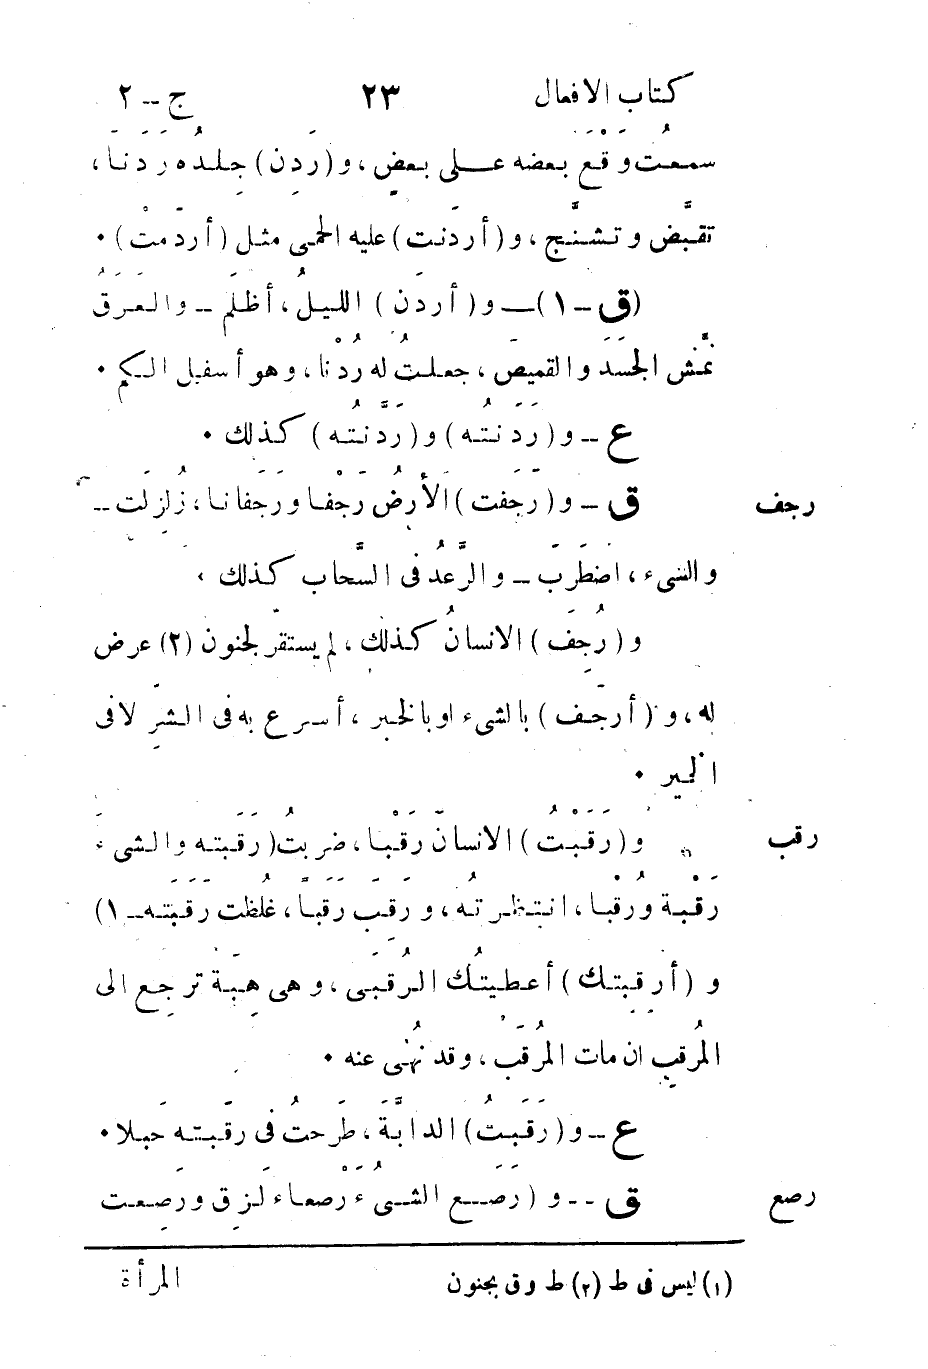 كتاب الافعال ٢٣ ج – ٢
سمعتُ وَقْعَ بعضه على بعض ، و ( رَدِن ) جِلدُه رَدَنَا ،
تقبَّض و تشنَّج ، و ( أردَنَت ) عليه الحمى مثل ( أردَمَتْ ) ٠
(ق – ١) – و ( أردَنَ ) الليلُ ، أظلَمَ – والعَرَقُ
نمَّش الجَسَدَ والقميصَ ، جعلتُ له رُدْنا ، وهو أسفل الكم ٠
ع – و ( رَدَنتُه ) و ( رَدَّنتُه ) كذلك ٠
رجف ق – و ( رَجَفت ) الأرضُ رَجْفا و رَجَفانا ، زُلزِلَت –
والشيء ، اضطَرَبَ – والرَّعدُ فى السَّحاب كذلك ،
و ( رُجِفَ ) الانسانُ كذلك ، لم يستقرّ لجنون (٢) عرض
له ، و ( أرجَف ) بالشيء او بالخبر ، أسرع به فى الشرِّ لا فى
الخير ٠
رقب و ( رَقَبْتُ ) الانسانَ رَقْبا ، ضربتُ ( رَقَبَته والشىءَ
رِقْبة و رُقْبا ، انتظرتُه ، و رَقِب رَقَبا ، غلُظت رَقَبَته – ١)
و ( أرقَبتك ) أعطيتُك الرُقبَى ، وهى هِبَة ترجِع الى
المُرقِبِ ان مات المُرقَبُ ، وقد نُهْى عنه ٠
ع – و ( رَقَبتُ ) الدابَّةَ ، طَرحتُ فى رقَبته حَبلا ٠
رصع ق – – و ( رصِع الشىءُ رَصعا ، لَزِق و رَصِعت
(١) ليس فى ط (٢) ط و ق بجنون المرأة